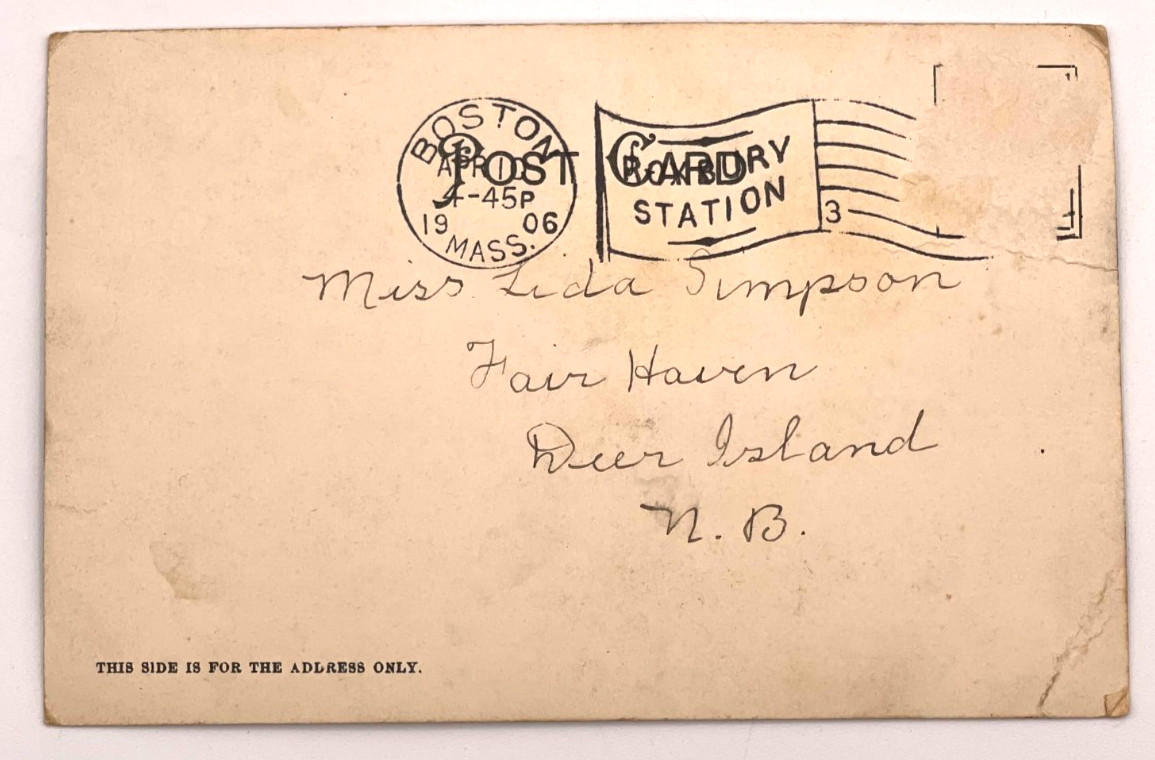 BOSTON
POST CARD
APR 10
4-45P
1906
MASS.
ROXBURY
STATION
3
Miss Lida Simpson
Fair Haven
Deer Island
N. B.
THIS SIDE IS FOR THE ADDRESS ONLY.